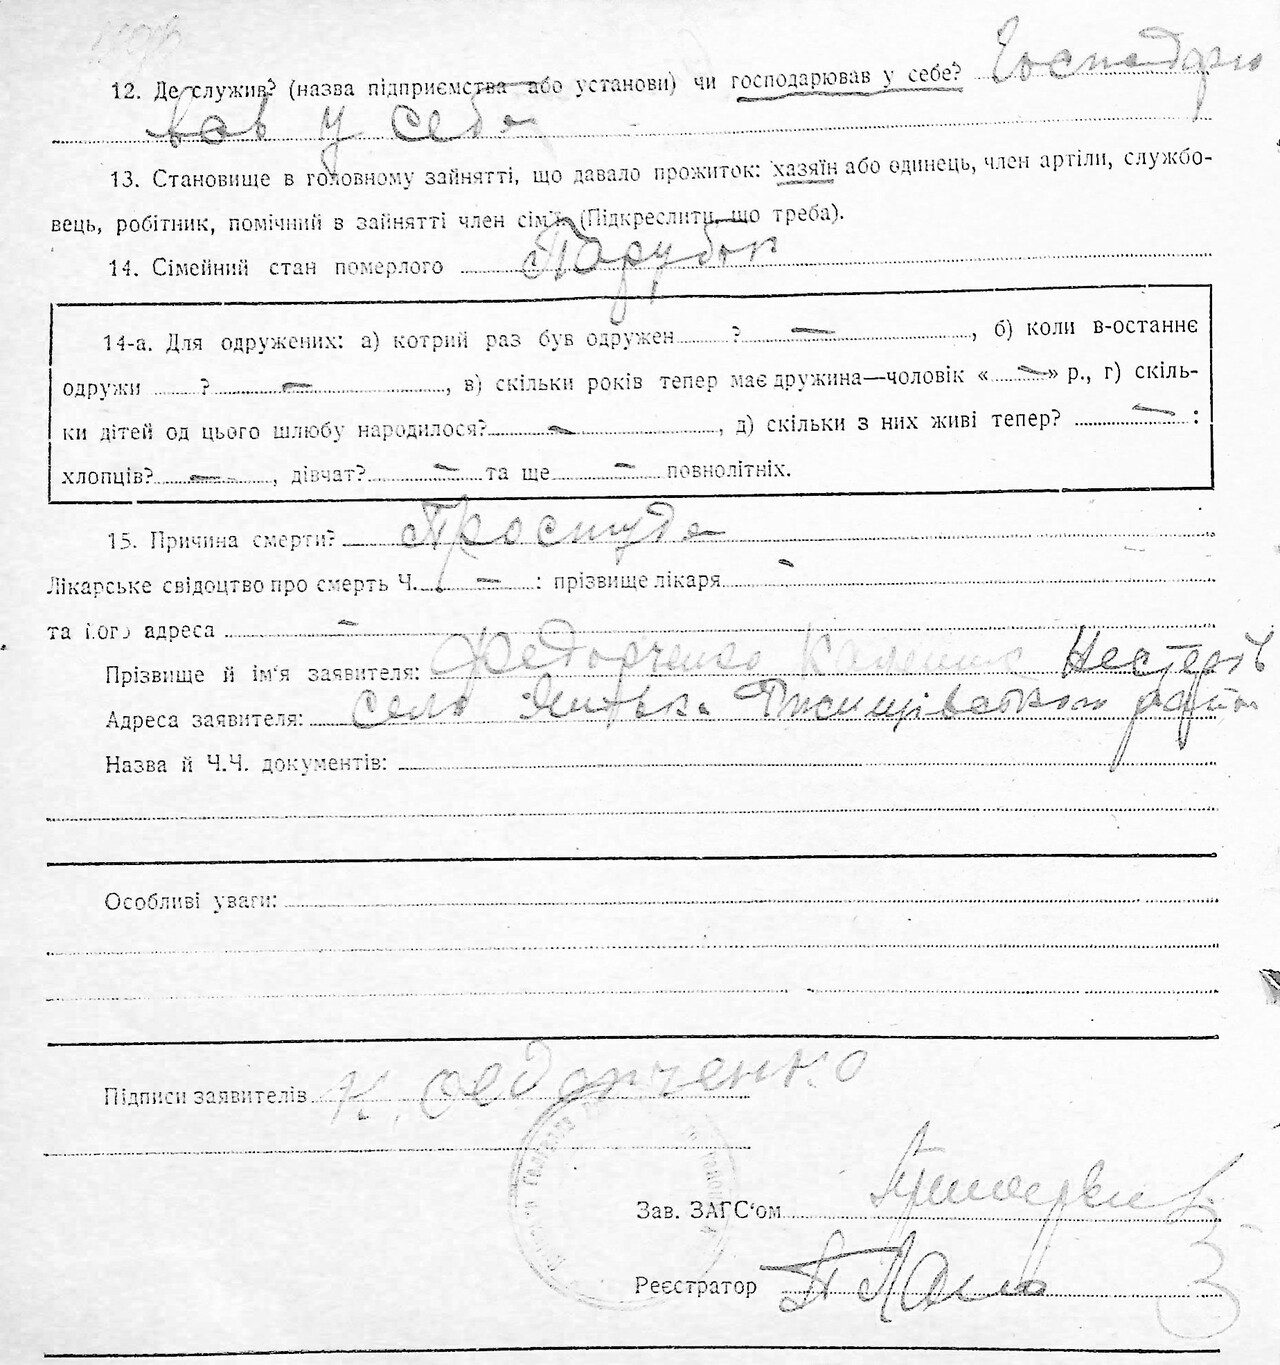 12. Де служив? (назва підприємства або установи) чи господарював у себе? Господарю
вав у себе
13. Становище в головному зайнятті, що давало прожиток: хазяїн або одинець, член артіли, службо-
вець, робітник, помічний в зайнятті член сім'ї. (Підкреслити, що треба).
14. Сімейний стан померлого Парубок
14-а. Для одружених: а) котрий раз був одружен ? —, б) коли в-останнє
одружи ? —, в) скільки років тепер має дружина—чоловік « — » р., г) скіль-
ки дітей од цього шлюбу народилося? —, д) скільки з них живі тепер? — :
хлопців? —, дівчат? — та ще — повнолітніх.
15. Причина смерти? Простуда
Лікарське свідоцтво про смерть Ч. — : прізвище лікаря —
та його адреса —
Прізвище й ім'я заявителя: Федорченко Каленик Нестерів
Адреса заявителя: село
Назва й Ч.Ч. документів:
Особливі уваги:
Підписи заявителів К. Федорченко
Зав. ЗАГС'ом
Реєстратор